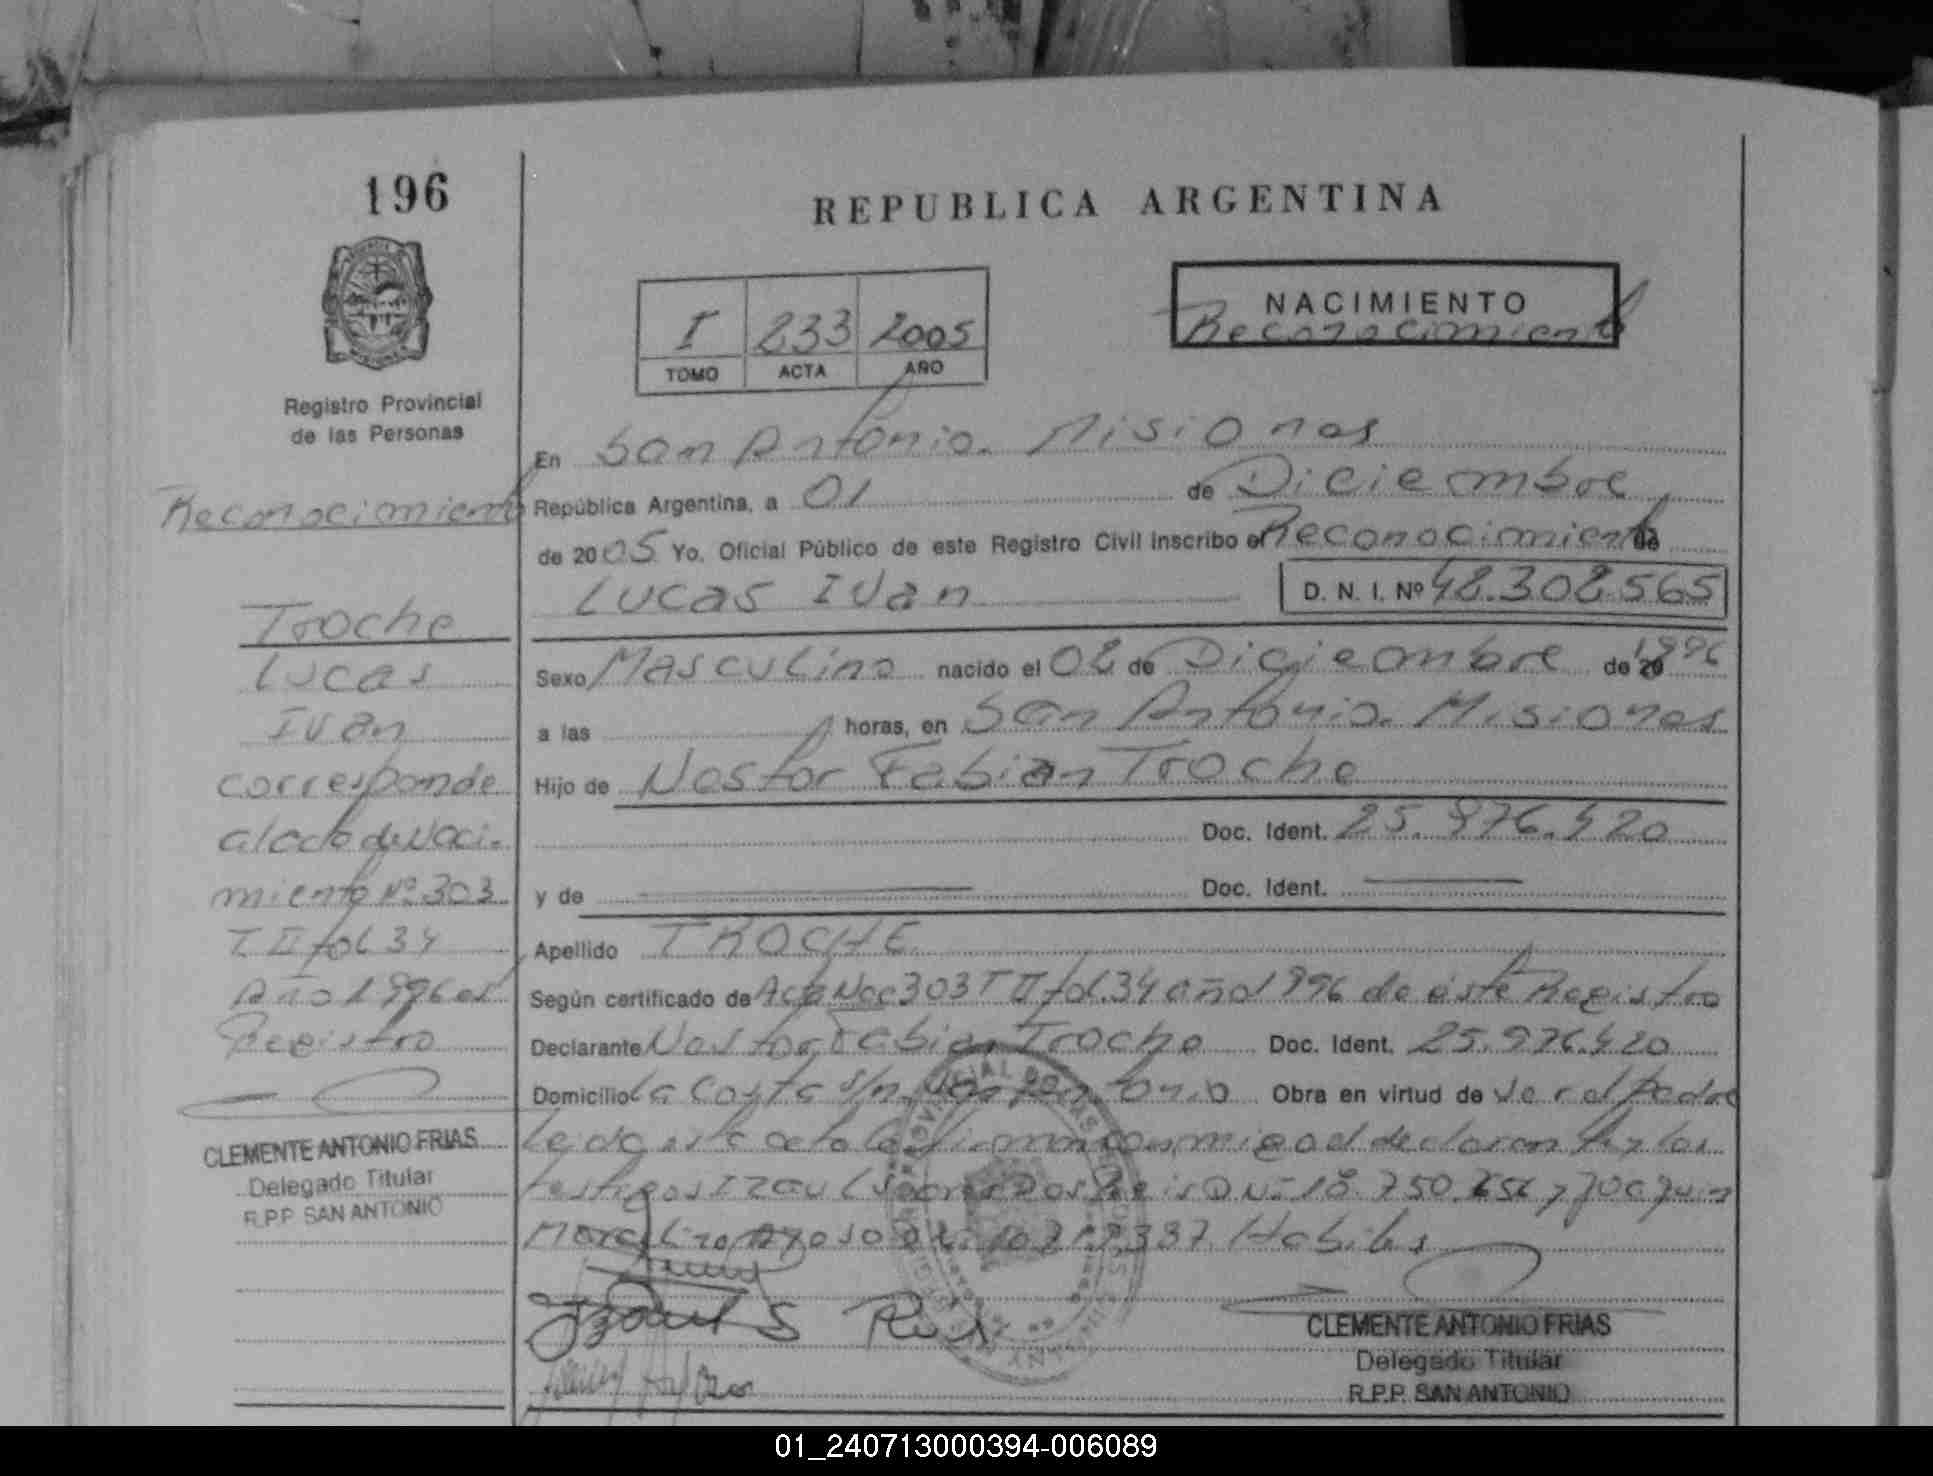 196
REPUBLICA ARGENTINA
NACIMIENTO
Reconocimiento
I 233 2005
TOMO ACTA AÑO
Registro Provincial
de las Personas
En San Antonio. Misiones
República Argentina, a 01 de Diciembre
de 2005 Yo. Oficial Público de este Registro Civil inscribo el Reconocimiento de
Lucas Ivan D. N. I. Nº 42.302.565
Sexo Masculino nacido el 02 de Diciembre de 1996
a las horas, en San Antonio. Misiones
Hijo de Nestor Fabian Troche
Doc. Ident. 25.976.420
y de Doc. Ident.
Apellido TROCHE
Según certificado de Acta Nac 303 T II fol. 34 año 1996 de este Registro
Declarante Nestor Fabian Troche Doc. Ident. 25.976.420
Domicilio La Costa s/n San Antonio Obra en virtud de ser el Padre
Leida esta acta la firman conmigo el declarante y los
testigos
Habiles
Reconocimiento
Troche
Lucas
Ivan
corresponde
al acta de Naci-
miento Nº 303
T II fol 34
Año 1996 
Registro
CLEMENTE ANTONIO FRIAS
Delegado Titular
R.P.P. SAN ANTONIO
CLEMENTE ANTONIO FRIAS
Delegado Titular
R.P.P. SAN ANTONIO
01_240713000394-006089